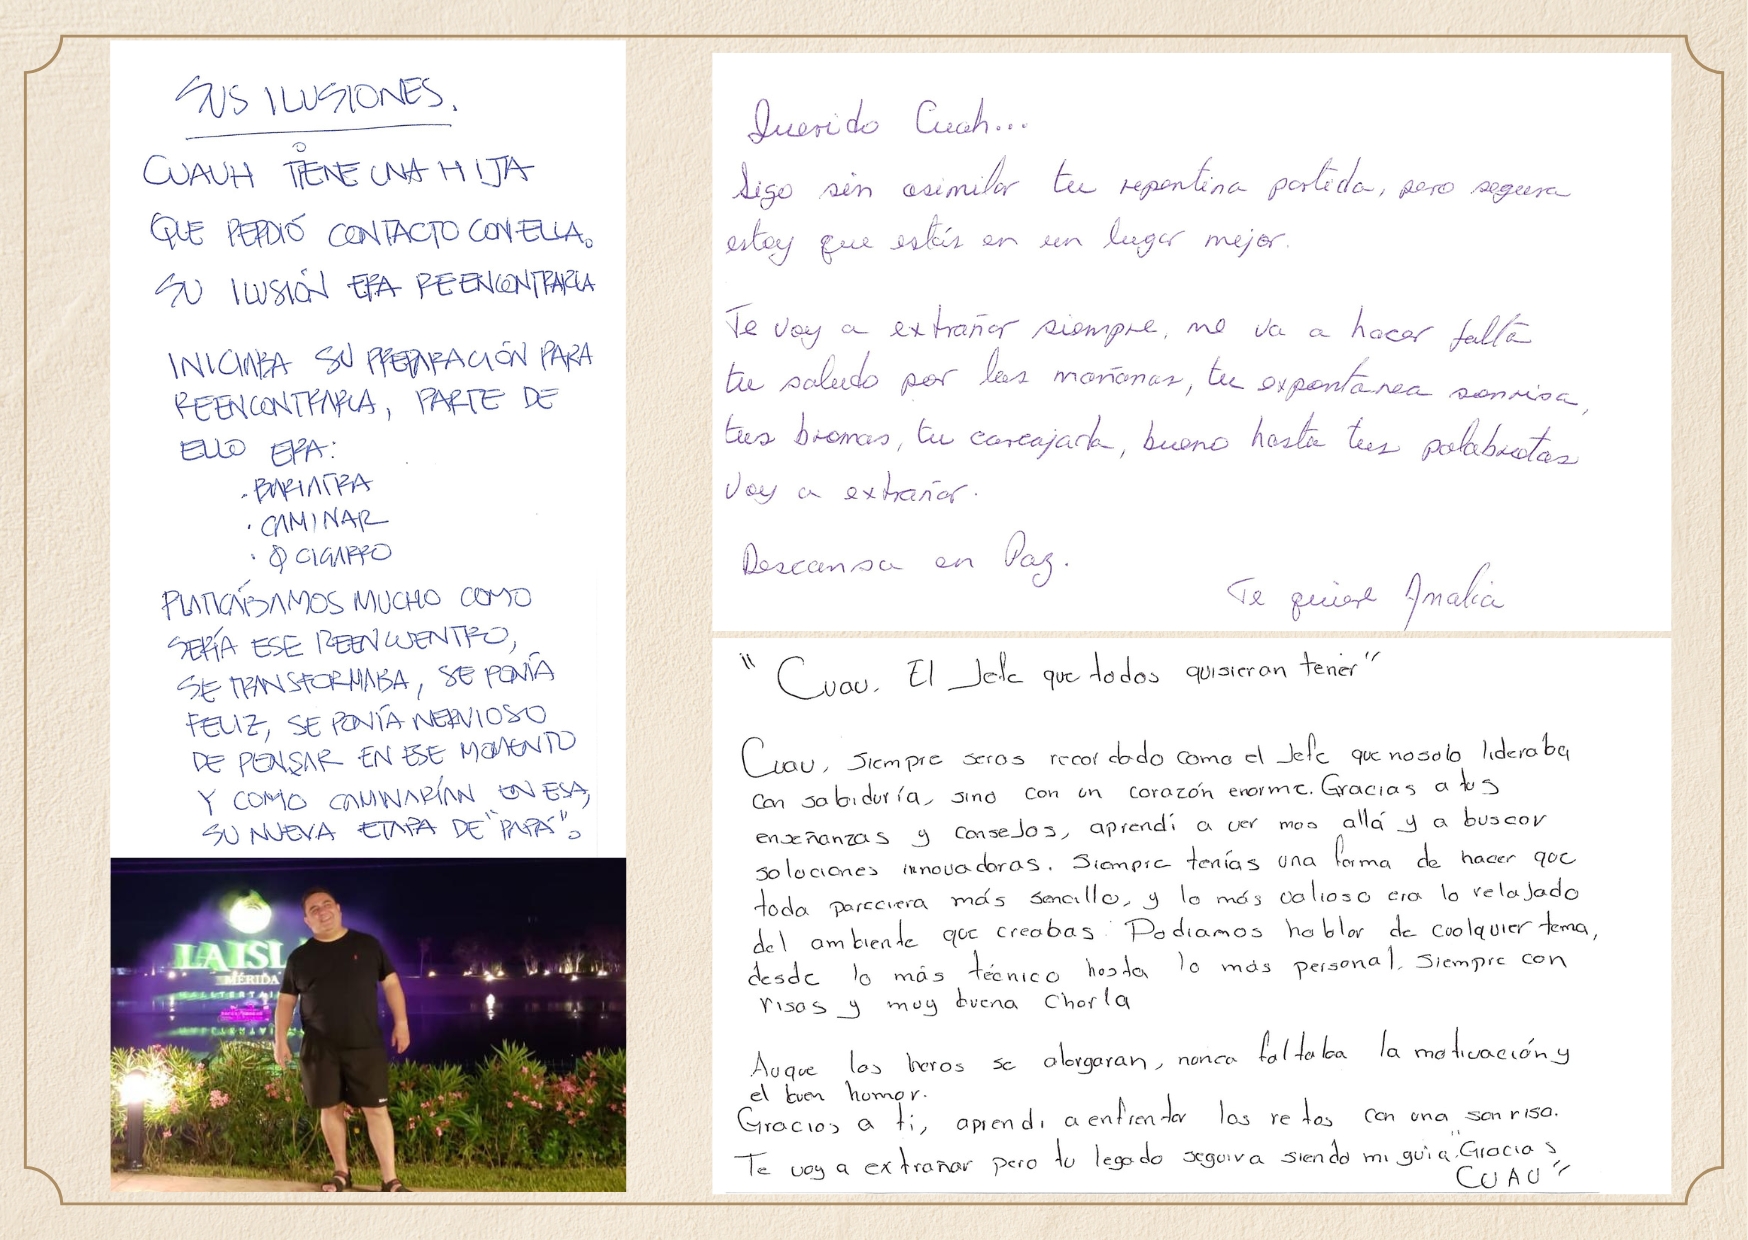 SUS ILUSIONES.
CUAUH TIENE UNA HIJA
QUE PERDIÓ CONTACTO CON ELLA.
SU ILUSIÓN ERA REENCONTRARLA
INICIABA SU PREPARACIÓN PARA
REENCONTRARLA, PARTE DE
ELLO ERA:
. BARIATRA
. CAMINAR
. Ø CIGARRO
PLATICÁBAMOS MUCHO COMO
SERÍA ESE REENCUENTRO,
SE TRANSFORMABA, SE PONÍA
FELIZ, SE PONÍA NERVIOSO
DE PENSAR EN ESE MOMENTO
Y COMO CAMINARÍAN EN ESA,
SU NUEVA ETAPA DE "PAPÁ".
LA ISL
MÉRIDA
Querido Cuah...
Sigo sin asimilar tu repentina partida, pero segura
estoy que estás en un lugar mejor.
Te voy a extrañar siempre, me va a hacer falta
tu saludo por las mañanas, tu expontánea sonrisa,
tus bromas, tu carcajada, bueno hasta tus palabrotas
voy a extrañar.
Descansa en Paz.
Te quiere Amalia
"Cuau. El Jefe que todos quisieran tener"
Cuau, Siempre seras recordado como el Jefe que no solo lideraba
con sabiduría, sino con un corazón enorme. Gracias a tus
enseñanzas y consejos, aprendí a ver mas allá y a buscar
soluciones innovadoras. Siempre tenías una forma de hacer que
toda pareciera más sencillo, y lo más valioso era lo relajado
del ambiente que creabas. Podiamos hablar de cualquier tema,
desde lo más técnico hasta lo más personal. Siempre con
risas y muy buena charla
Auque las horas se alargaran, nunca faltaba la motivación y
el buen humor.
Gracias a ti, aprendi a enfrentar los retos con una sonrisa.
Te voy a extrañar pero tu legado seguira siendo mi guia. "Gracias
CUAU"